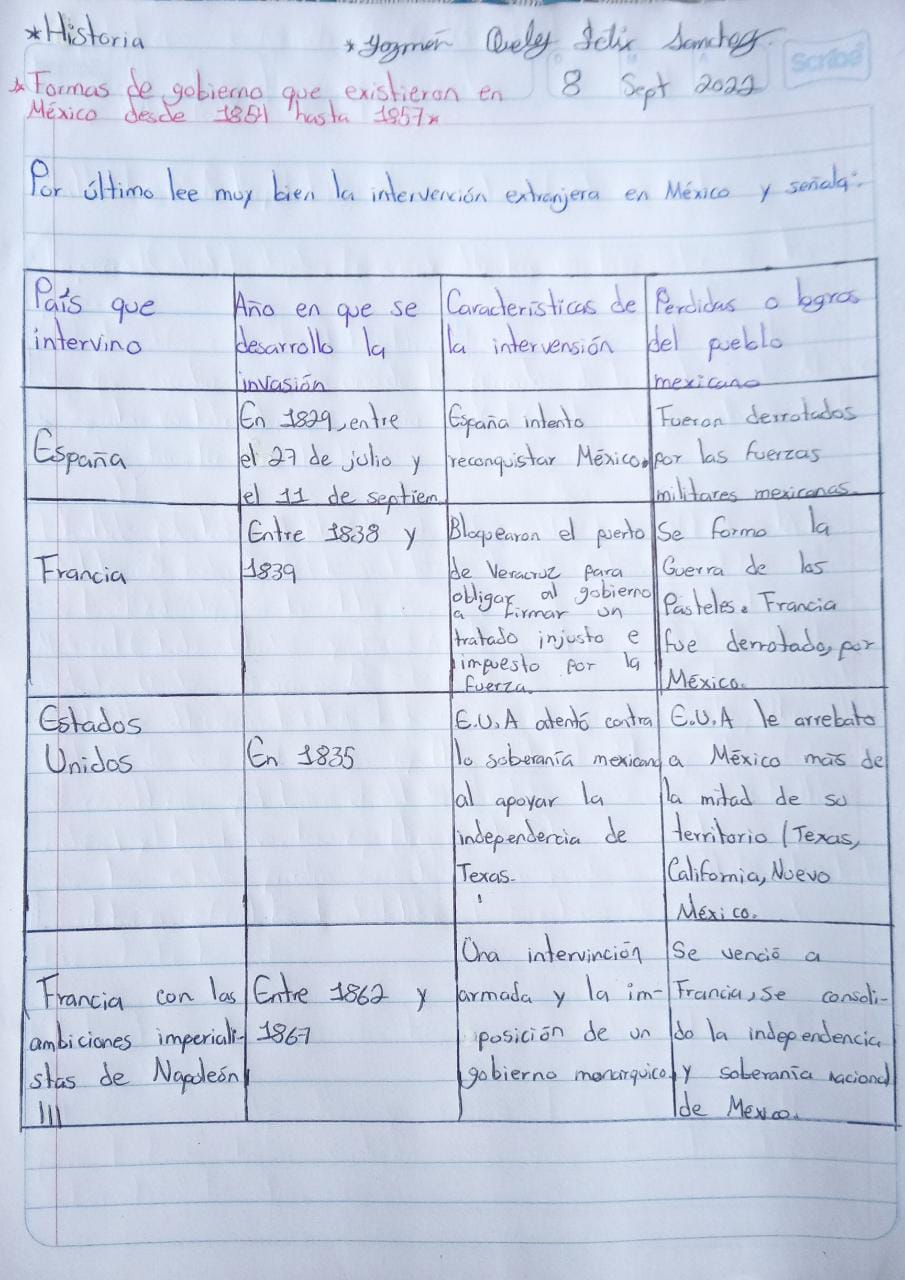 *Historia
*Yazmín Quely Felix Sanchez.
Scribe
*Formas de gobierno que existieron en
8 Sept 2022
México desde 1854 hasta 1857*
Por último lee muy bien la intervención extranjera en México y señala:
País que
intervino
Año en que se
desarrollo la
invasión
Características de
la intervensión
Perdidas o logros
del pueblo
mexicano
España
En 1829, entre
el 27 de julio y
el 11 de septiem
España intento
reconquistar México.
Fueron derrotados
por las fuerzas
militares mexicanas.
Francia
Entre 1838 y
1839
Bloquearon el puerto
de Veracruz para
obligar al gobierno
a firmar un
tratado injusto e
impuesto por la
fuerza.
Se formo la
Guerra de los
Pasteles. Francia
fue derrotada, por
México.
Estados
Unidos
En 1835
E.U.A atentó contra
la soberanía mexicana
al apoyar la
independencia de
Texas.
E.U.A le arrebato
a México más de
la mitad de su
territorio (Texas,
California, Nuevo
México.
Francia con las
ambiciones imperiali-
stas de Napoleón
III
Entre 1862 y
1867
Una intervinción
armada y la im-
posición de un
gobierno monarquico
Se venció a
Francia, se consoli-
do la independencia
y soberanía nacional
de México.